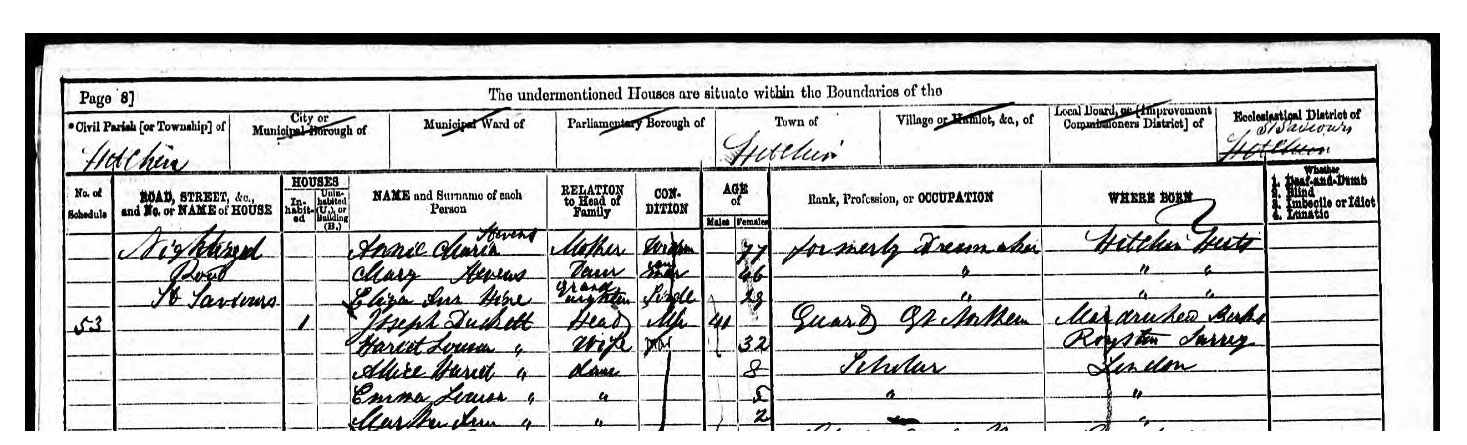 Page 8] The undermentioned Houses are situate within the Boundaries of the
*Civil Parish [or Township] of City or Municipal Borough of Municipal Ward of Parliamentary Borough of Town of Village or Hamlet, &c., of Local Board, or [Improvement Commissioners District] of Ecclesiastical District of
Hitchin Hitchin St Saviours Hitchin
No. of Schedule ROAD, STREET, &c., and No. or NAME of HOUSE HOUSES Inhabited Uninhabited (U.), or Building (B.) NAME and Surname of each Person RELATION to Head of Family CONDITION AGE of Males Females Rank, Profession, or OCCUPATION WHERE BORN Whether 1. Deaf-and-Dumb 2. Blind 3. Imbecile or Idiot 4. Lunatic
Annie Maria Stevens Mother 77 formerly Dressmaker Hitchin Herts
Road Mary Stevens Daur 46 " " "
St Saviours Eliza Ann Grand 28 " " "
53 1 Joseph Head 41 Guard Gt Northern Berks
Harriet Louisa " Wife 32 Surrey
Alice Harriet " daur 8 Scholar London
Emma Louisa " " 5 " "
Martha Ann " " 2 " "